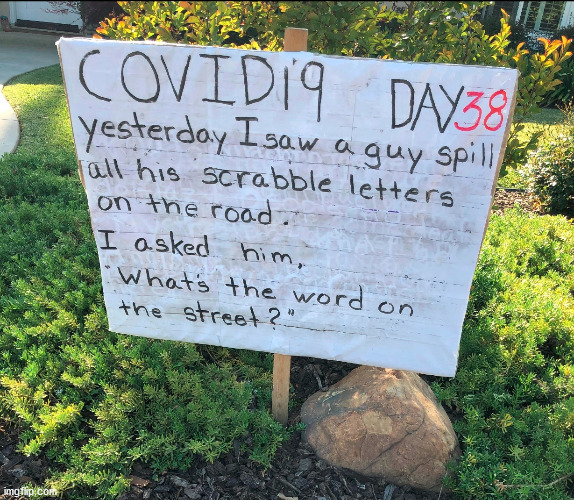 COVID19 DAY38
yesterday I saw a guy spill
all his scrabble letters
on the road.
I asked him,
"What's the word on
the street?"
imgflip.com